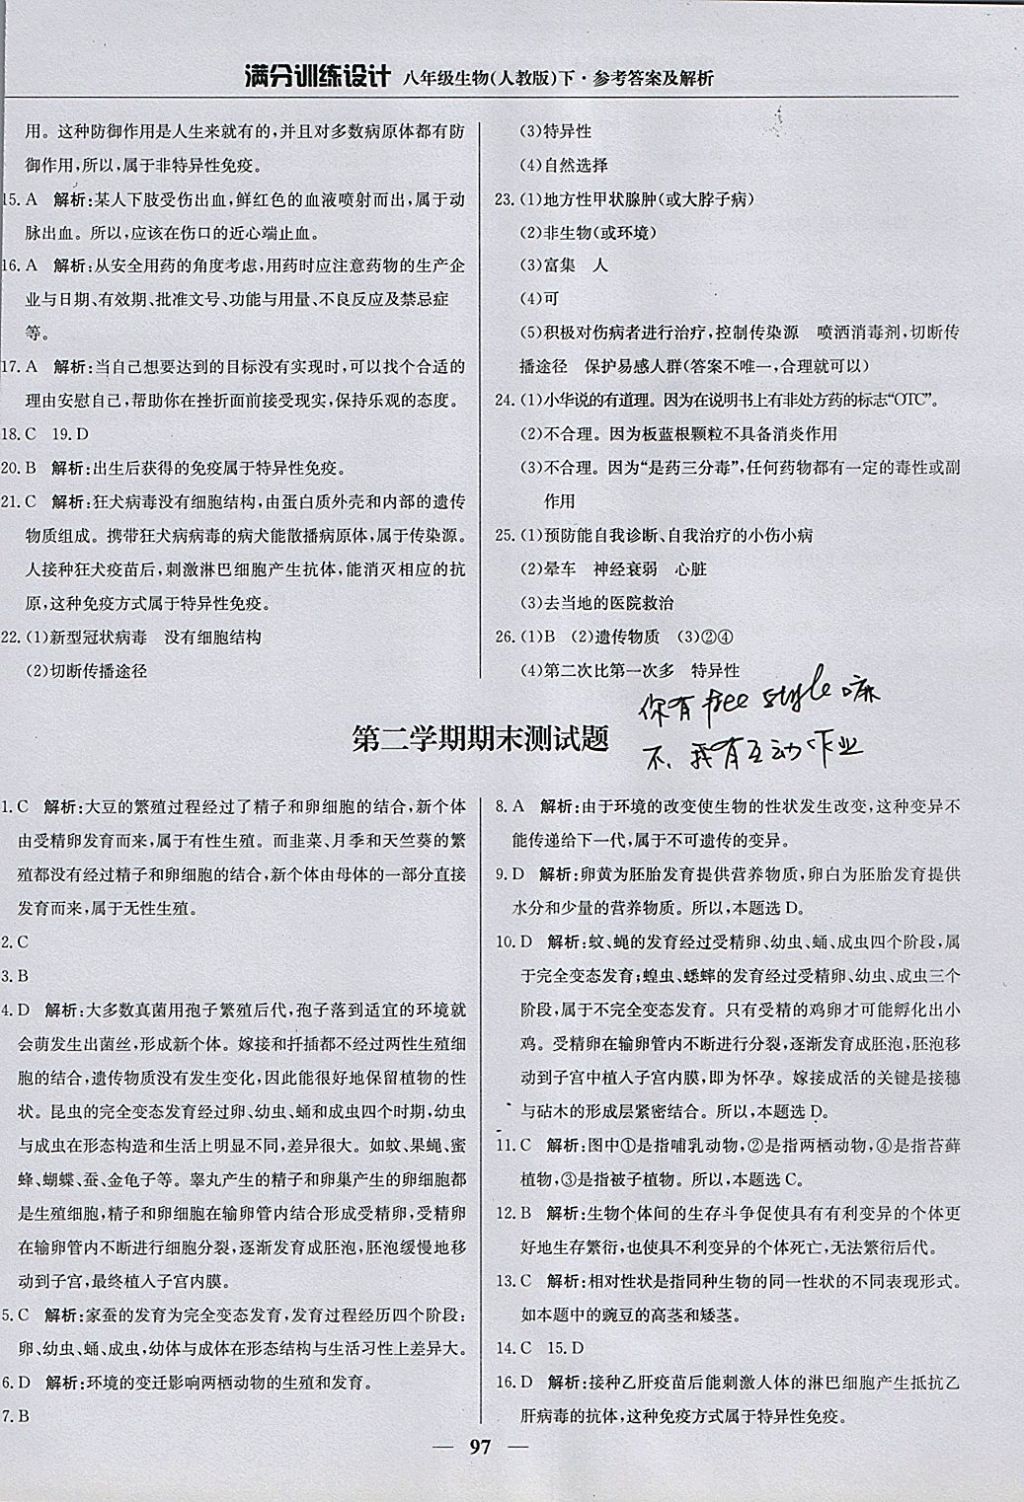 满分训练设计 八年级生物(人教版)下·参考答案及解析
用。这种防御作用是人生来就有的,并且对多数病原体都有防
御作用,所以,属于非特异性免疫。
15. A 解析:某人下肢受伤出血,鲜红色的血液喷射而出,属于动
脉出血。所以,应该在伤口的近心端止血。
16. A 解析:从安全用药的角度考虑,用药时应注意药物的生产企
业与日期、有效期、批准文号、功能与用量、不良反应及禁忌症
等。
17. A 解析:当自己想要达到的目标没有实现时,可以找个合适的
理由安慰自己,帮助你在挫折面前接受现实,保持乐观的态度。
18. C 19. D
20. B 解析:出生后获得的免疫属于特异性免疫。
21. C 解析:狂犬病毒没有细胞结构,由蛋白质外壳和内部的遗传
物质组成。携带狂犬病病毒的病犬能散播病原体,属于传染源。
人接种狂犬疫苗后,刺激淋巴细胞产生抗体,能消灭相应的抗
原,这种免疫方式属于特异性免疫。
22. (1)新型冠状病毒 没有细胞结构
(2)切断传播途径
(3)特异性
(4)自然选择
23. (1)地方性甲状腺肿(或大脖子病)
(2)非生物(或环境)
(3)富集 人
(4)可
(5)积极对伤病者进行治疗,控制传染源 喷洒消毒剂,切断传
播途径 保护易感人群(答案不唯一,合理就可以)
24. (1)小华说的有道理。因为在说明书上有非处方药的标志“OTC”。
(2)不合理。因为板蓝根颗粒不具备消炎作用
(3)不合理。因为“是药三分毒”,任何药物都有一定的毒性或副
作用
25. (1)预防能自我诊断、自我治疗的小伤小病
(2)晕车 神经衰弱 心脏
(3)去当地的医院救治
26. (1)B (2)遗传物质 (3)②④
(4)第二次比第一次多 特异性
你有 free style 嘛
不、我有互动作业
第二学期期末测试题
1. C 解析:大豆的繁殖过程经过了精子和卵细胞的结合,新个体
由受精卵发育而来,属于有性生殖。而韭菜、月季和天竺葵的繁
殖都没有经过精子和卵细胞的结合,新个体由母体的一部分直接
发育而来,属于无性生殖。
2. C
3. B
4. D 解析:大多数真菌用孢子繁殖后代,孢子落到适宜的环境就
会萌发生出菌丝,形成新个体。嫁接和扦插都不经过两性生殖细
胞的结合,遗传物质没有发生变化,因此能很好地保留植物的性
状。昆虫的完全变态发育经过卵、幼虫、蛹和成虫四个时期,幼虫
与成虫在形态构造和生活上明显不同,差异很大。如蚊、果蝇、蜜
蜂、蝴蝶、蚕、金龟子等。睾丸产生的精子和卵巢产生的卵细胞都
是生殖细胞,精子和卵细胞在输卵管内结合形成受精卵,受精卵
在输卵管内不断进行细胞分裂,逐渐发育成胚泡,胚泡缓慢地移
动到子宫,最终植人子宫内膜。
5. C 解析:家蚕的发育为完全变态发育,发育过程经历四个阶段:
卵、幼虫、蛹、成虫,幼体与成体在形态结构与生活习性上差异大。
6. D 解析:环境的变迁影响两栖动物的生殖和发育。
7. B
8. A 解析:由于环境的改变使生物的性状发生改变,这种变异不
能传递给下一代,属于不可遗传的变异。
9. D 解析:卵黄为胚胎发育提供营养物质,卵白为胚胎发育提供
水分和少量的营养物质。所以,本题选 D。
10. D 解析:蚊、蝇的发育经过受精卵、幼虫、蛹、成虫四个阶段,属
于完全变态发育;蝗虫、蟋蟀的发育经过受精卵、幼虫、成虫三个
阶段,属于不完全变态发育。只有受精的鸡卵才可能孵化出小
鸡。受精卵在输卵管内不断进行分裂,逐渐发育成胚泡,胚泡移
动到子宫中植人子宫内膜,即为怀孕。嫁接成活的关键是接穗
与砧木的形成层紧密结合。所以,本题选 D。
11. C 解析:图中①是指哺乳动物,②是指两栖动物,④是指苔藓
植物,③是指被子植物。所以,本题选 C。
12. B 解析:生物个体间的生存斗争促使具有有利变异的个体更
好地生存繁衍,也使具不利变异的个体死亡,无法繁衍后代。
13. C 解析:相对性状是指同种生物的同一性状的不同表现形式。
如本题中的豌豆的高茎和矮茎。
14. C 15. D
16. D 解析:接种乙肝疫苗后能刺激人体的淋巴细胞产生抵抗乙
肝病毒的抗体,这种免疫方式属于特异性免疫。
— 97 —